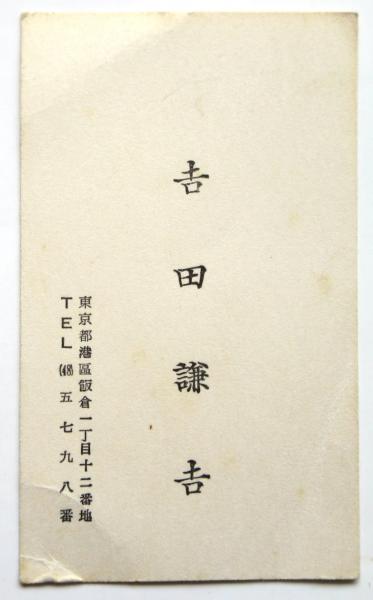 𠮷田謙𠮷
東京都港區飯倉一丁目十二番地
TEL(48)五七九八番